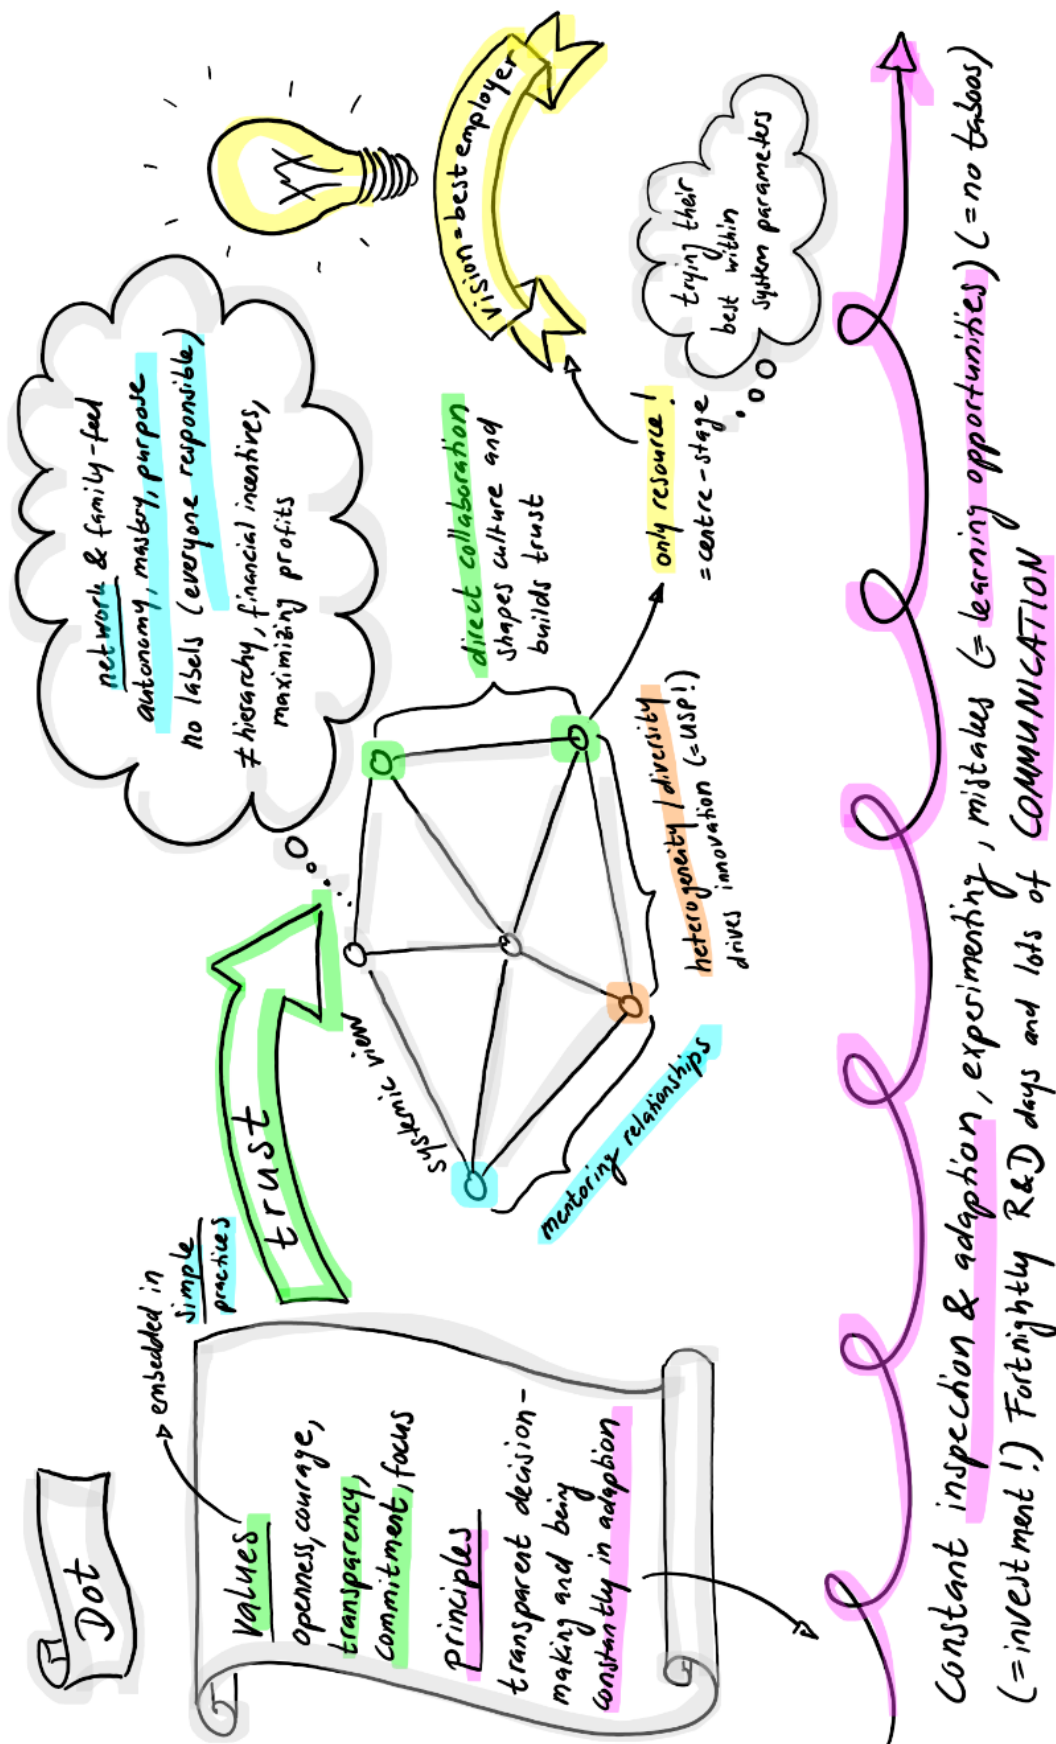 Dot
values
openness, courage,
transparency,
commitment, focus
principles
transparent decision-
making and being
constantly in adaption
embedded in
simple
practices
trust
systemic view
network & family-feel
autonomy, mastery, purpose
no labels (everyone responsible)
≠ hierarchy, financial incentives,
maximizing profits
direct collaboration
shapes culture and
builds trust
mentoring relationships
heterogeneity / diversity
drives innovation (=USP!)
only resource!
=centre-stage
vision=best employer
trying their
best within
system parameters
Constant inspection & adaption, experimenting, mistakes (=learning opportunities) (=no taboos)
(=investment!) Fortnightly R&D days and lots of COMMUNICATION